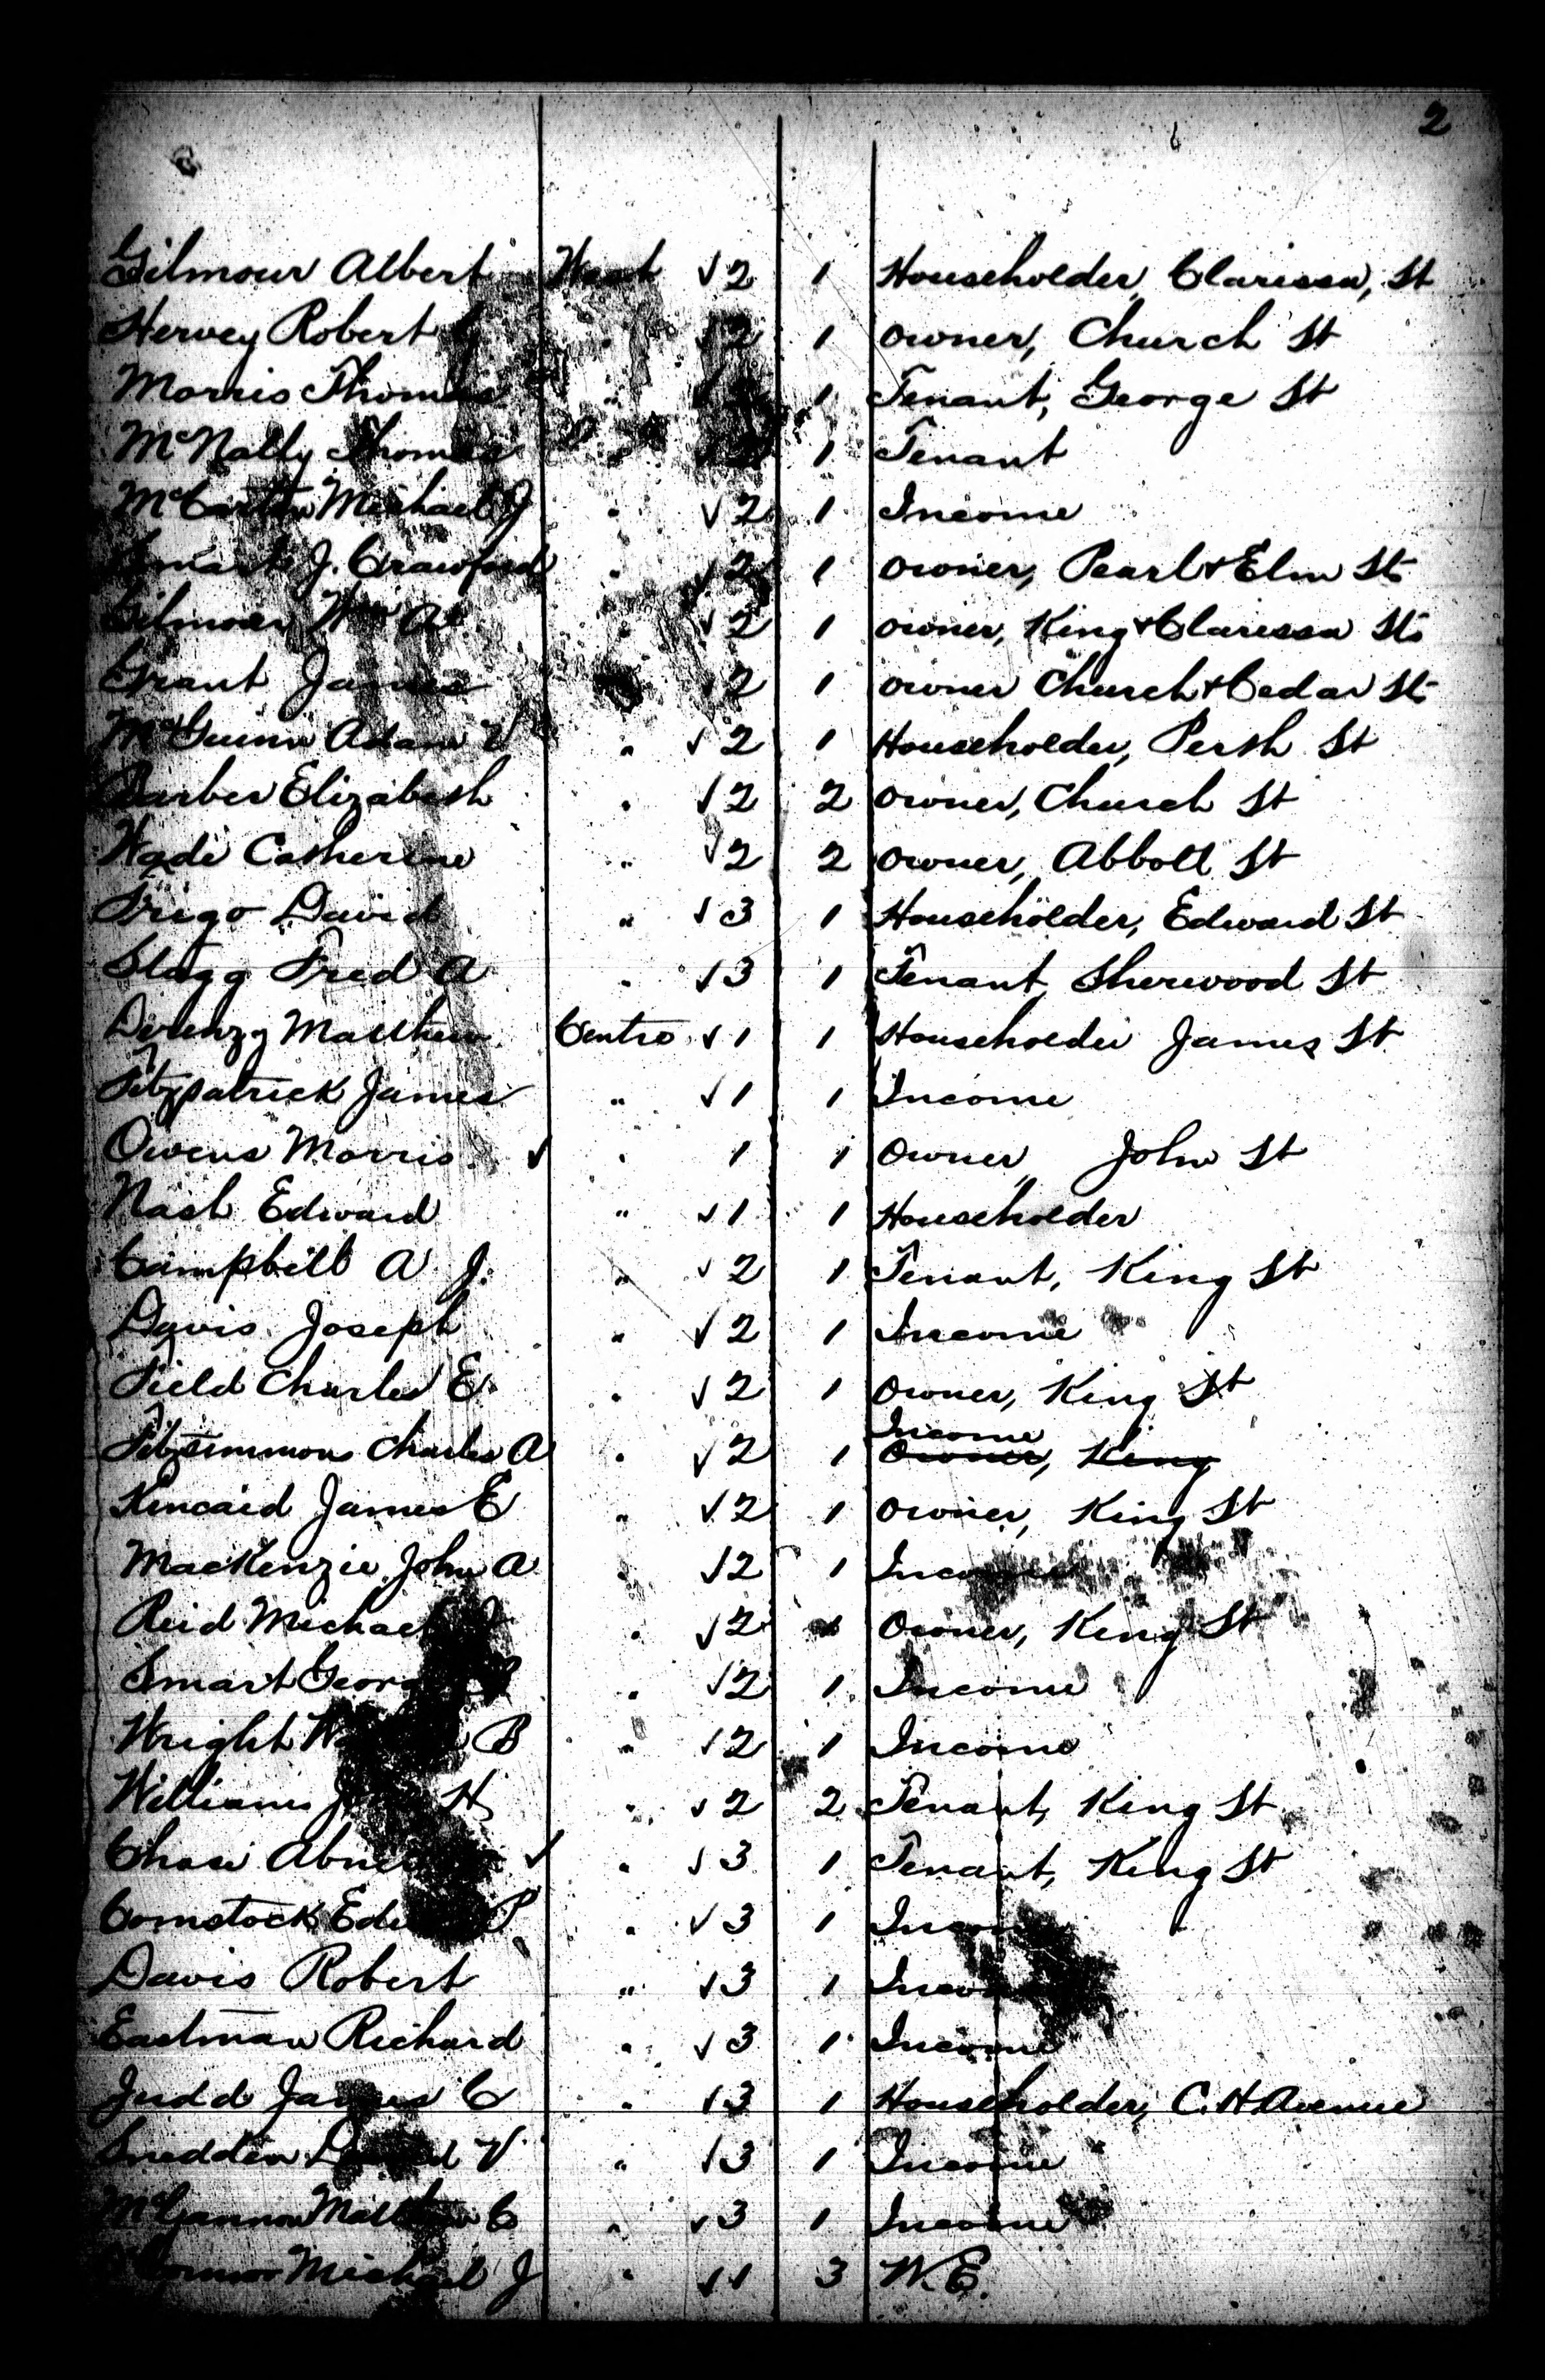 2
Gilmour Albert West √ 2 1 Householder, Clarissa, St
Hervey Robert " √ 2 1 Owner, Church St
Morris Thomas " 1 Tenant, George St
McNally Thomas " 1 Tenant
Michael J " √ 2 1 Income
Smart J. Crawford " √ 2 1 Owner, Pearl & Elm Sts
Gilmour Wm " √ 2 1 Owner, King & Clarissa Sts
Grant James √ 2 1 Owner Church & Cedar Sts
McGuinn Adam " √ 2 1 Householder, Perth St
Barber Elizabeth " √ 2 2 Owner, Church St
Wade Catherine " √ 2 2 Owner, Abbott St
Trigo David " √ 3 1 Householder, Edward St
Stagg Fred A " √ 3 1 Tenant, Sherwood St
Derenzy Matthew Centre √ 1 1 Householder James St
Fitzpatrick James " √ 1 1 Income
Owens Morris √ " 1 1 Owner, John St
Nash Edward " √ 1 1 Householder
Campbell A. J. " √ 2 1 Tenant, King St
Davis Joseph " √ 2 1 Income
Field Charles E. " √ 2 1 Owner, King St
Income
Fitzsimmons Charles A " √ 2 1 Owner, King
Kincaid James E " √ 2 1 Owner, King St
MacKenzie John A " √ 2 1 Income
Reid Michael " √ 2 1 Owner, King St
Smart George " √ 2 1 Income
Wright B " √ 2 1 Income
Williams H " √ 2 2 Tenant, King St
Chase Abner √ " √ 3 1 Tenant, King St
Comstock P. " √ 3 1 Income
Davis Robert " √ 3 1 Income
Eastman Richard " √ 3 1 Income
Judd James C " √ 3 1 Householder, C. H. Avenue
Sneddin David V " √ 3 1 Income
McGannon Matthew C " √ 3 1 Income
O'Connor Michael J " √ 1 3 W. E.